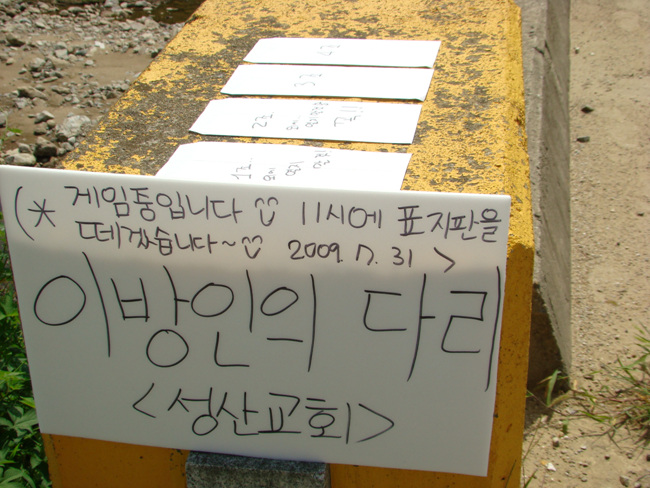 4조
3조
2조
1조
(* 게임중입니다 11시에 표지판을
떼겠습니다~ 2009. 7. 31 >
이방인의 다리
<성산교회>